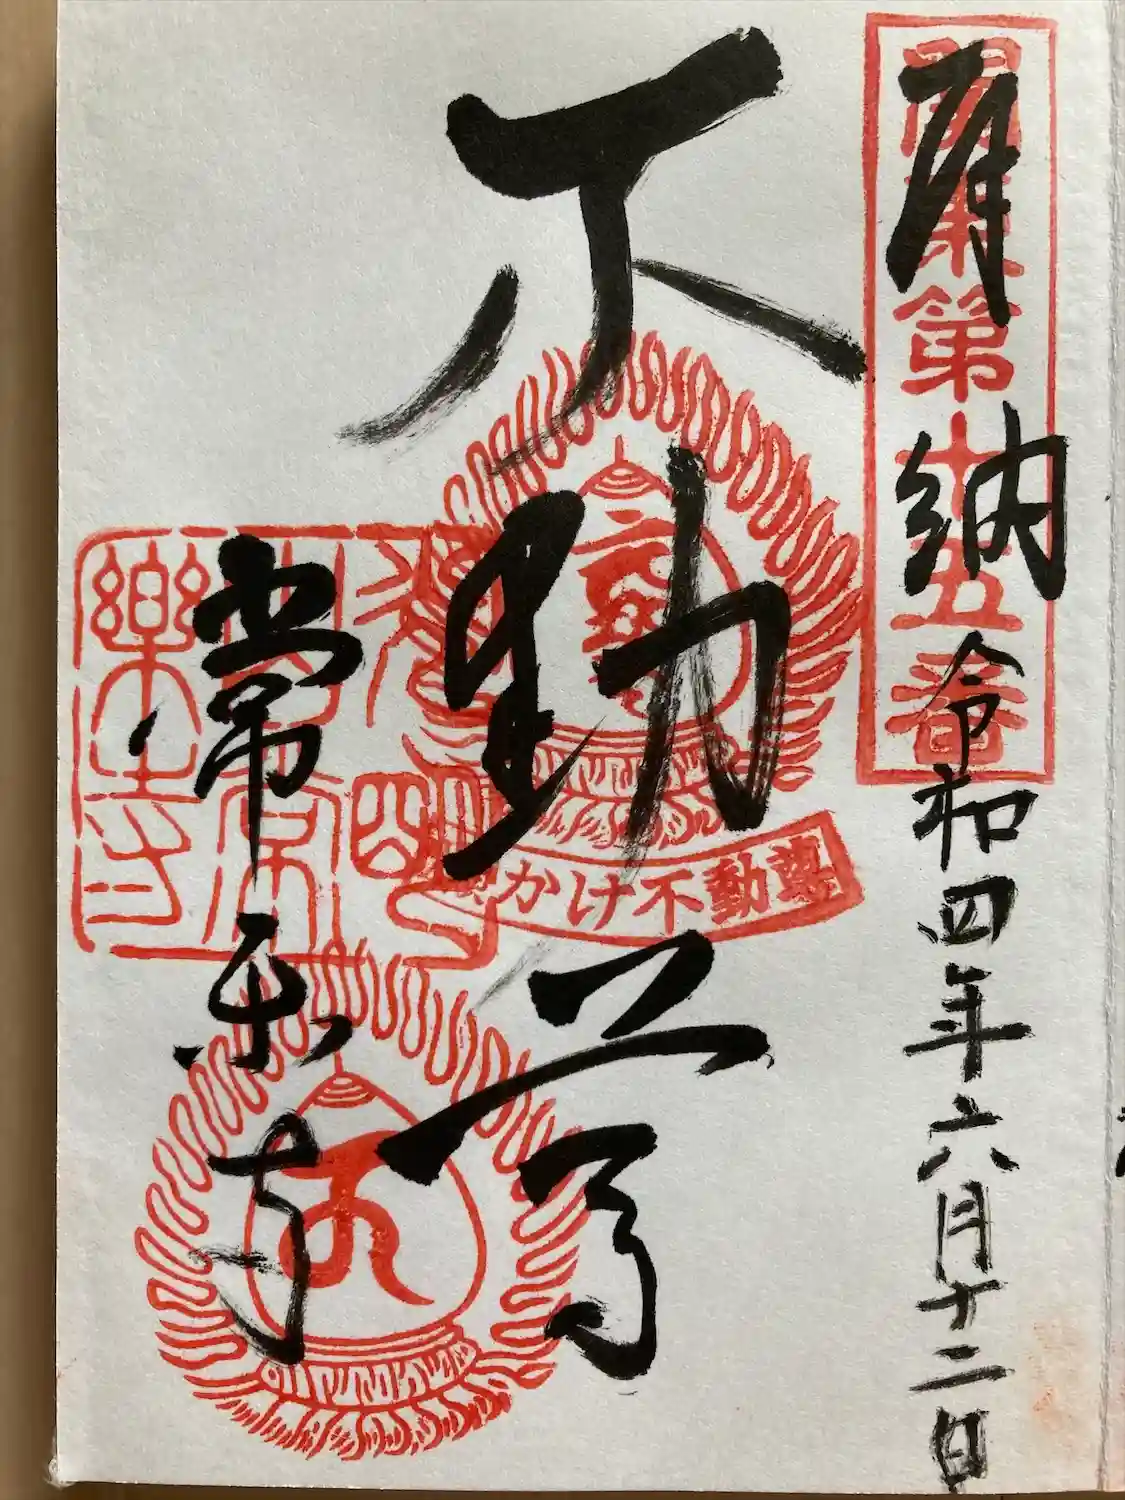 関東第十五番
奉納
令和四年六月十二日
不動尊
願かけ不動尊
常楽寺